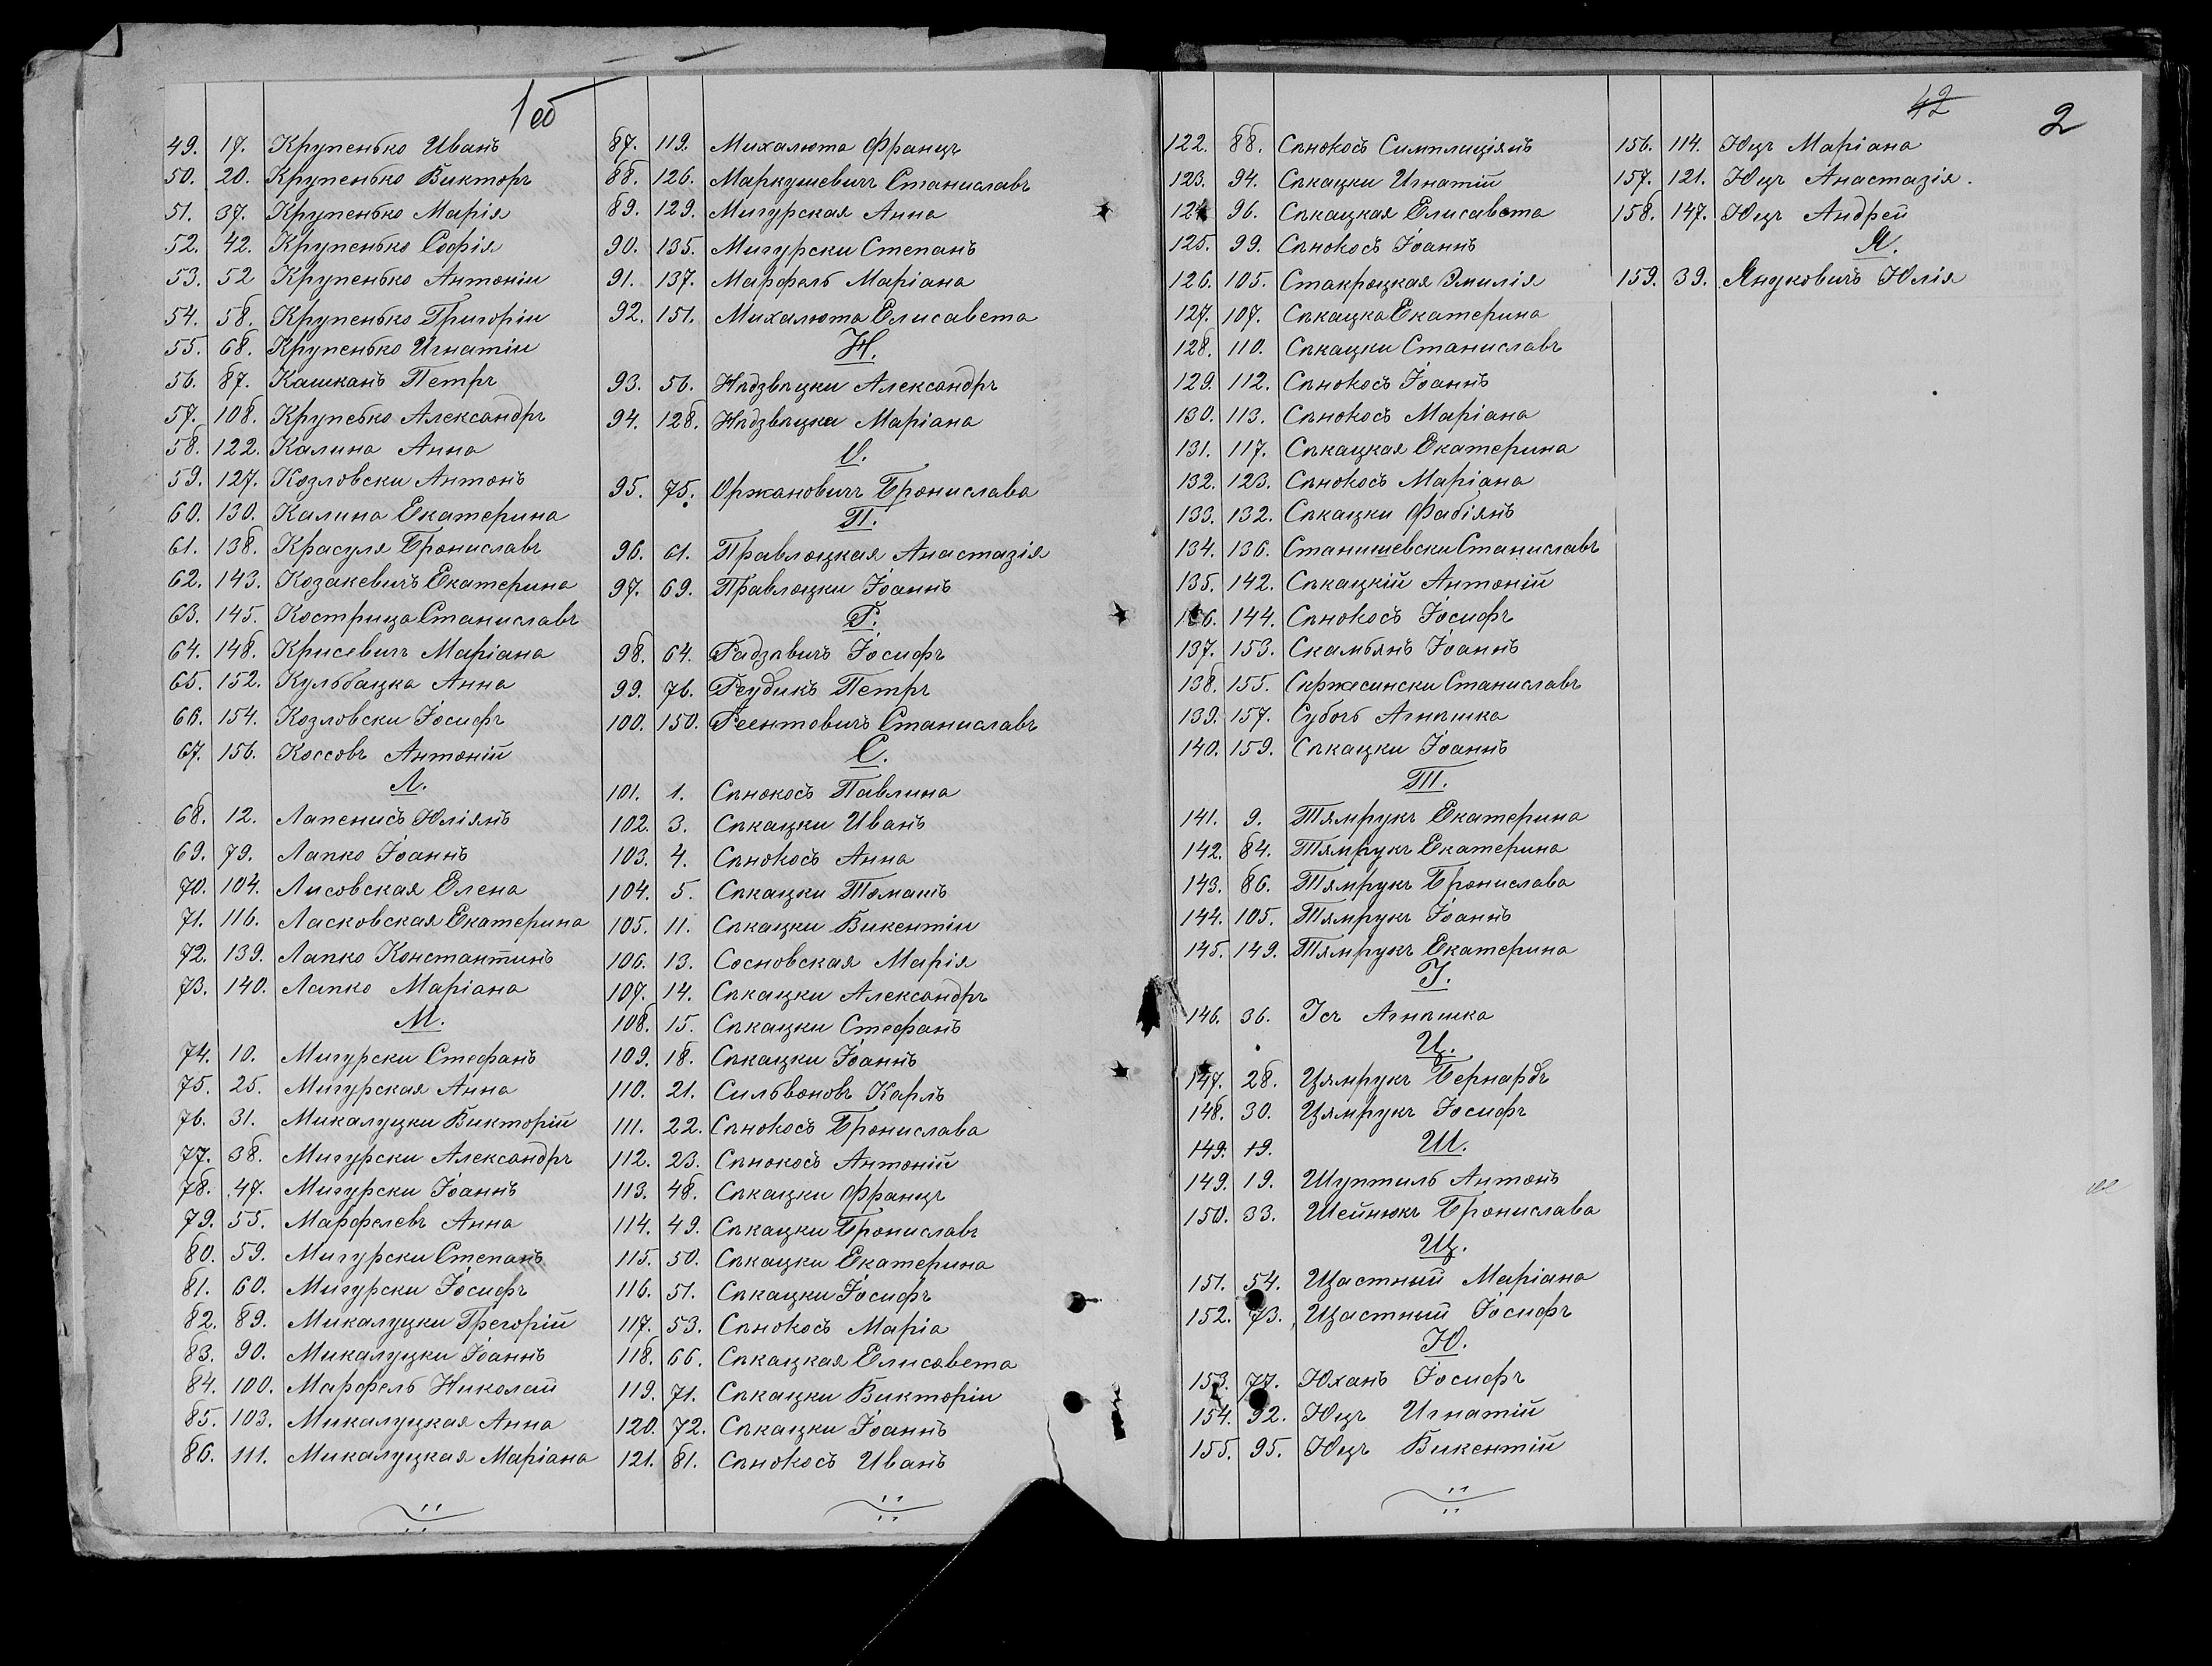 1 об
49. 17. Крупенько Иванъ
50. 20. Крупенько Викторъ
51. 37. Крупенько Марія
52. 42. Крупенько Софія
53. 52 Крупенько Антоніи
54. 58. Крупенько Григоріи
55. 68. Крупенько Игнатіи
56. 87. Кашканъ Петръ
57. 108. Крупсько Александръ
58. 122. Калина Анна
59. 127. Козловски Антонъ
60. 130. Калина Екатерина
61. 138. Красуля Брониславъ
62. 143. Козакевичъ Екатерина
63. 145. Кострица Станиславъ
64. 148. Крисевичъ Маріана
65. 152. Кульбацка Анна
66. 154. Козловски Іосифъ
67. 156. Коссовъ Антоній
Л.
68. 12. Лапенисъ Юліянъ
69. 79. Лапко Іоаннъ
70. 104. Лисовская Елена
71. 116. Ласковская Екатерина
72. 139. Лапко Константинъ
73. 140. Лапко Маріана
М.
74. 10. Мигурски Стефанъ
75. 25. Мигурская Анна
76. 31. Микалуцки Викторій
77. 38. Мигурски Александръ
78. 47. Мигурски Іоаннъ
79. 55. Марфелевъ Анна
80. 59. Мигурски Степанъ
81. 60. Мигурски Іосифъ
82. 89. Микалуцки Грегорій
83. 90. Микалуцки Іоаннъ
84. 100. Марфель Николай
85. 103. Микалуцкая Анна
86. 111. Микалуцкая Маріана
87. 119. Михалюта Францъ
88. 126. Маркушевичъ Станиславъ
89. 129. Мигурская Анна
90. 135. Мигурски Степанъ
91. 137. Марфель Маріана
92. 151. Михалюта Елисавета
Н.
93. 56. Нѣдзвѣцки Александръ
94. 128. Нѣдзвѣцки Маріана
О.
95. 75. Оржановичъ Бронислава
П.
96. 61. Правлоцкая Анастазія
97. 69. Правлоцки Іоаннъ
Р.
98. 64. Радзѣвичъ Іосифъ
99. 76. Реудикъ Петръ
100. 150. Реентовичъ Станиславъ
С.
101. 1. Сѣнокосъ Павлина
102. 3. Сѣкацки Иванъ
103. 4. Сѣнокосъ Анна
104. 5. Сѣкацки Томашъ
105. 11. Сѣкацки Викентіи
106. 13. Сосновская Марія
107. 14. Сѣкацки Александръ
108. 15. Сѣкацки Стефанъ
109. 18. Сѣкацки Іоаннъ
110. 21. Сильвоновъ Карлъ
111. 22. Сѣнокосъ Бронислава
112. 23. Сѣнокосъ Антоній
113. 48. Сѣкацки Францъ
114. 49. Сѣкацки Брониславъ
115. 50. Сѣкацки Екатерина
116. 51. Сѣкацки Іосифъ
117. 53. Сѣнокосъ Маріа
118. 66. Сѣкацкая Елисавета
119. 71. Сѣкацки Викторіи
120. 72. Сѣкацки Іоаннъ
121. 81. Сѣнокосъ Иванъ
42
2
122. 88. Сѣнокосъ Симплиціянъ
123. 94. Сѣкацки Игнатій
124 96. Сѣкацкая Елисавета
125. 99. Сѣнокосъ Іоаннъ
126. 105. Стакроцкая Эмилія
127. 107. Сѣкацка Екатерина
128. 110. Сѣкацки Станиславъ
129. 112. Сѣнокосъ Іоаннъ
130. 113. Сѣнокосъ Маріана
131. 117. Сѣкацкая Екатерина
132. 123. Сѣнокосъ Маріана
133. 132. Сѣкацки Фабіянъ
134. 136. Станишевски Станиславъ
135. 142. Сѣкацкій Антоній
136. 144. Сѣнокосъ Іосифъ
137. 153. Скамбянъ Іоаннъ
138. 155. Скржесински Станиславъ
139. 157. Субочь Агнѣшка
140. 159. Сѣкацки Іоаннъ
Т.
141. 9. Тямрукъ Екатерина
142. 84. Тямрукъ Екатерина
143. 86. Тямрукъ Бронислава
144. 105. Тямрукъ Іоаннъ
145. 149. Тямрукъ Екатерина
У.
146. 36. Усъ Агнѣшка
Ц.
147. 28. Цямрукъ Бернардъ
148. 30. Цямрукъ Іосифъ
149. 19. Ш.
149. 19. Шуптиль Антонъ
150. 33. Шейнюкъ Бронислава
Щ.
151. 54. Щастный Маріана
152. 73. Щастный Іосифъ
Ю.
153. 77. Юханъ Іосифъ
154. 92. Юцъ Игнатій
155. 95. Юцъ Викентій
156. 114. Юцъ Маріана
157. 121. Юцъ Анастазія.
158. 147. Юцъ Андрей
Я.
159. 39. Яндковичъ Юлія